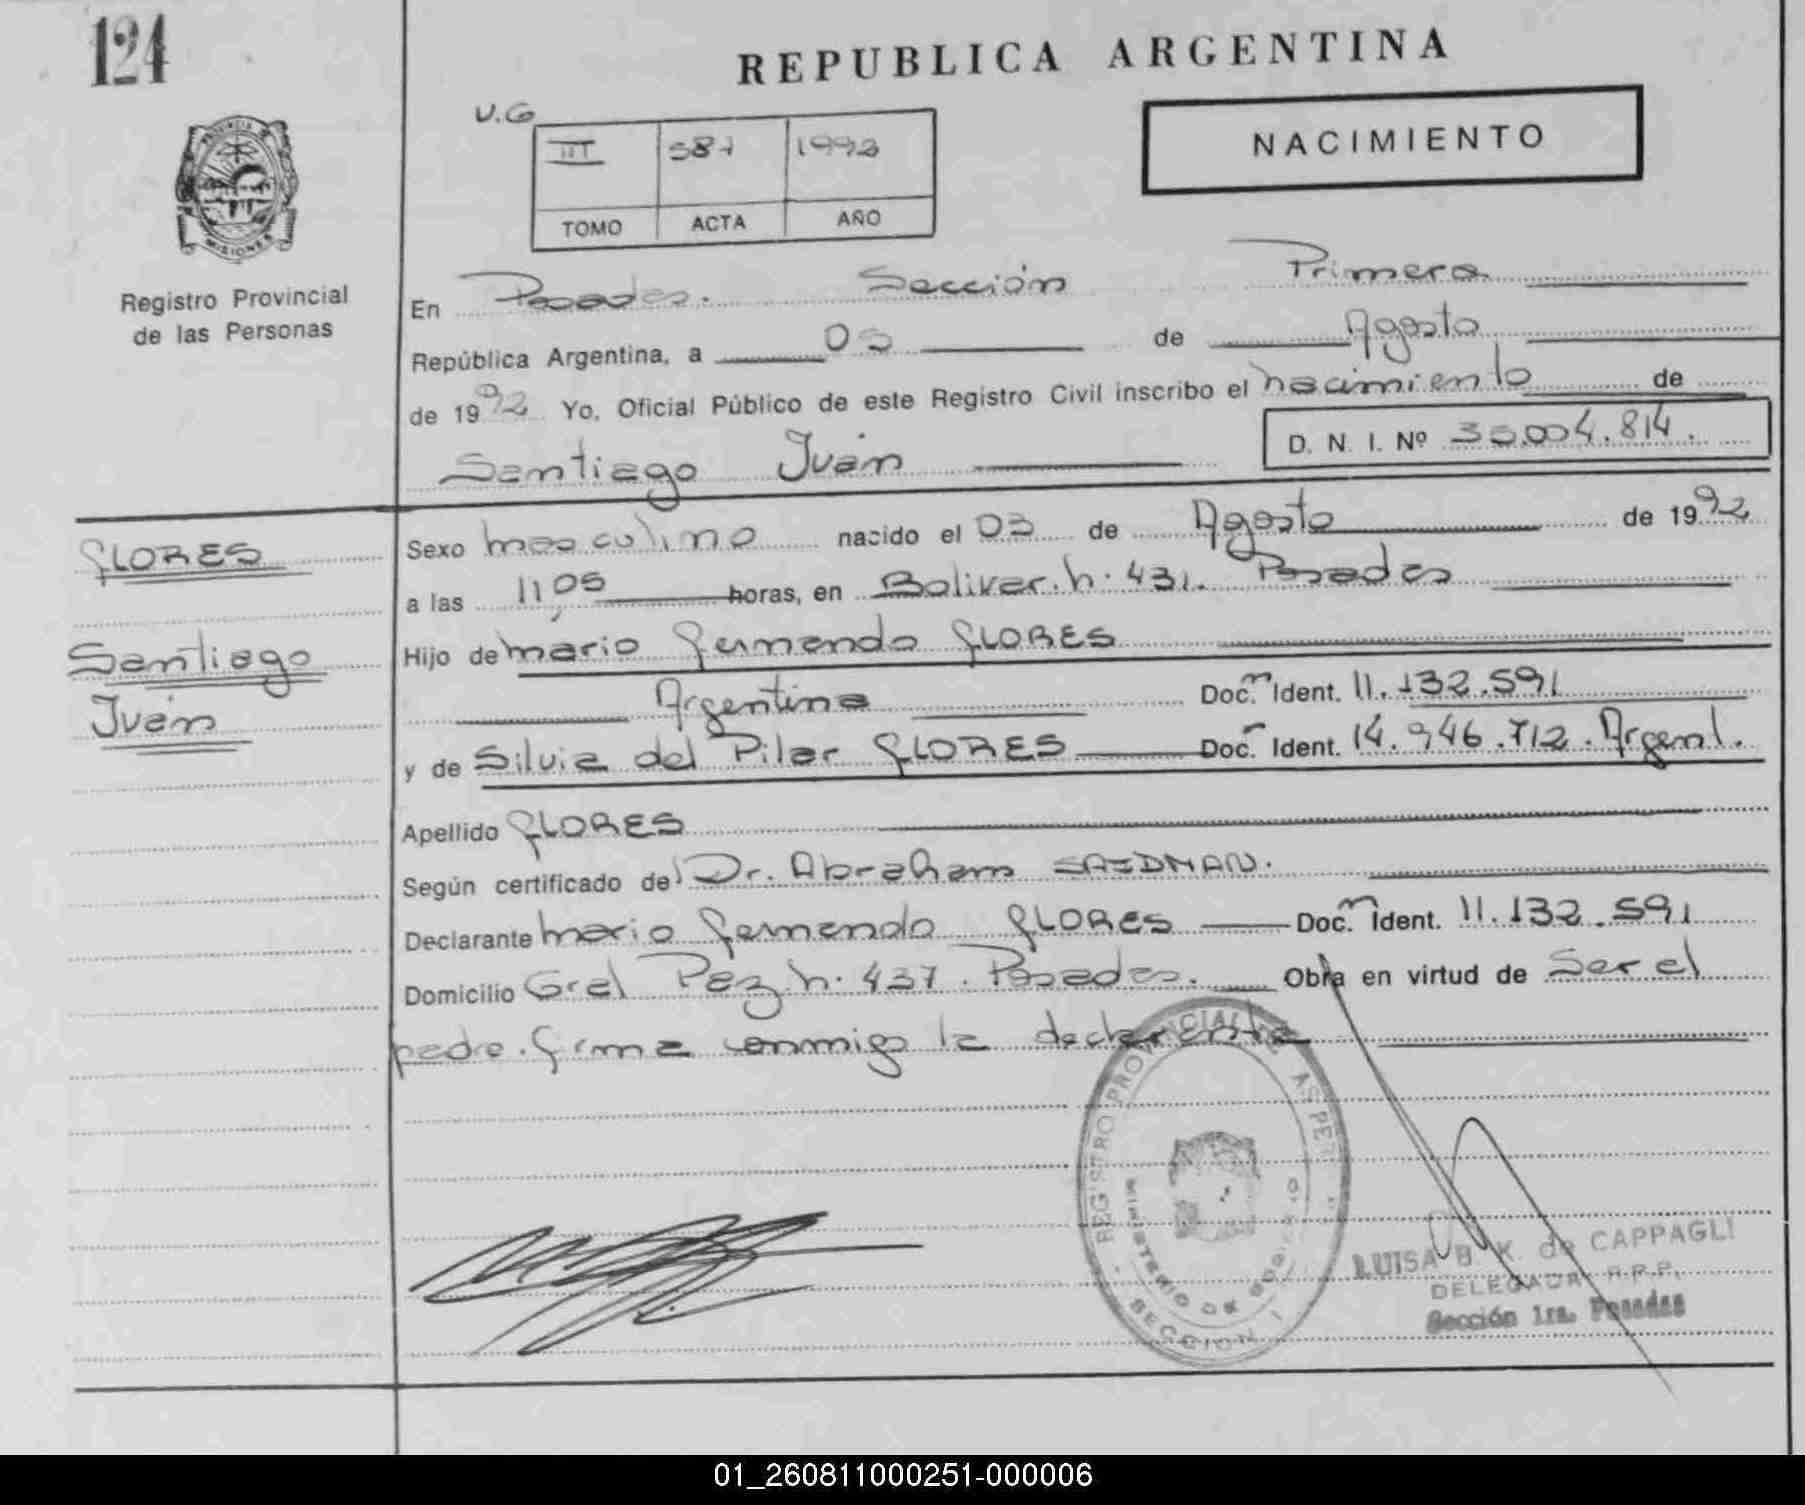 124
REPUBLICA ARGENTINA
U.G
III 587 1992
TOMO ACTA AÑO
NACIMIENTO
PROVINCIA DE MISIONES
Registro Provincial
de las Personas
En Posadas. Sección Primera
República Argentina, a 05 de Agosto
de 1992 Yo, Oficial Público de este Registro Civil inscribo el nacimiento de
Santiago Iván
D. N. I. Nº .004.814.
FLORES
Santiago
Iván
Sexo masculino nacido el 03 de Agosto de 1992
a las 11,05 horas, en Bolivar. n. 431. Posadas
Hijo de Mario Fernando FLORES
Argentina Doc. Ident. 11.132.591
y de Silvia del Pilar FLORES Doc. Ident. 14.946.712. Argent.
Apellido FLORES
Según certificado del Dr. Abraham SAIDMAN.
Declarante Mario Fernando FLORES Doc. Ident. 11.132.591
Domicilio Gral Paz n. 437. Posadas. Obra en virtud de Ser el
padre. Firma conmigo la declarante
REGISTRO PROVINCIAL DE LAS PER
MINISTERIO DE GOBIERNO
SECCION 1
LUISA B. K. de CAPPAGLI
DELEGADA R.P.P.
Sección 1ra. Posadas
01_260811000251-000006